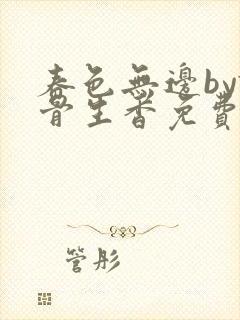 春色無邊by
骨生香免費
管彤